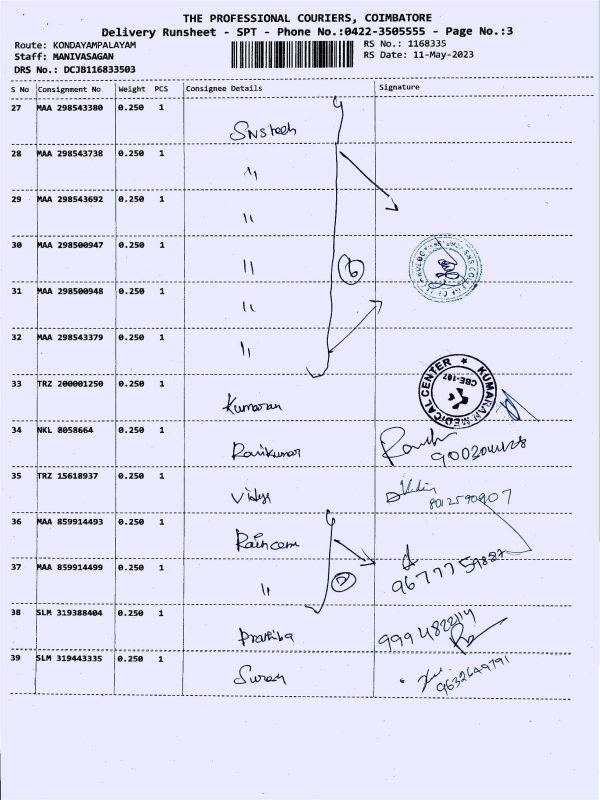 THE PROFESSIONAL COURIERS, COIMBATORE
Delivery Runsheet - SPT - Phone No.:0422-3505555 - Page No.:3
Route: KONDAYAMPALAYAM
RS No.: 1168335
Staff: MANIVASAGAN
RS Date: 11-May-2023
DRS No.: DCJB116833503
S No Consignment No Weight PCS Consignee Details Signature
27 MAA 298543380 0.250 1 SNS tech
28 MAA 298543738 0.250 1 "
29 MAA 298543692 0.250 1 "
30 MAA 298500947 0.250 1 " 6
31 MAA 298500948 0.250 1 "
32 MAA 298543379 0.250 1 "
KUMARAN MEDICAL CENTER ★ CBE-107
33 TRZ 200001250 0.250 1 Kumaran
34 NKL 8058664 0.250 1 Ravikumar
35 TRZ 15618937 0.250 1 Vidya 8012590907
36 MAA 859914493 0.250 1
37 MAA 859914499 0.250 1 " 2 9677759887
38 SLM 319388404 0.250 1 Prathiba
39 SLM 319443335 0.250 1 Suresh 9632649791